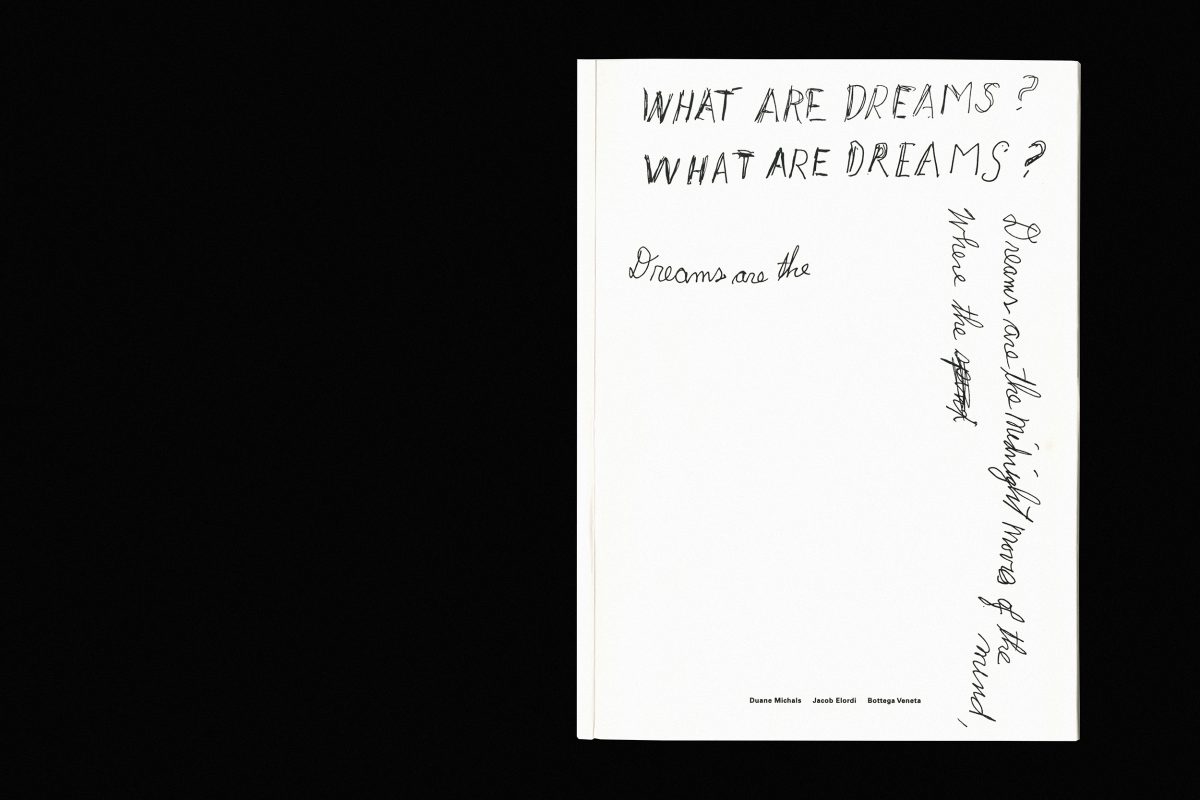 WHAT ARE DREAMS?
WHAT ARE DREAMS?
Dreams are the
Dreams are the midnight movies of the mind,
Where the
Duane Michals Jacob Elordi Bottega Veneta